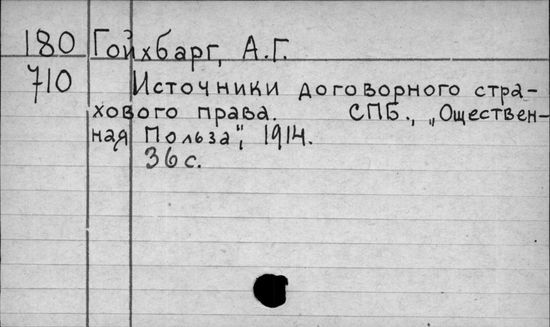 180 Гойхбарг, А.Г.
710 Источники договорного стра-
хового права. СПБ., „Оществен-
ная Польза", 1914.
36 с.